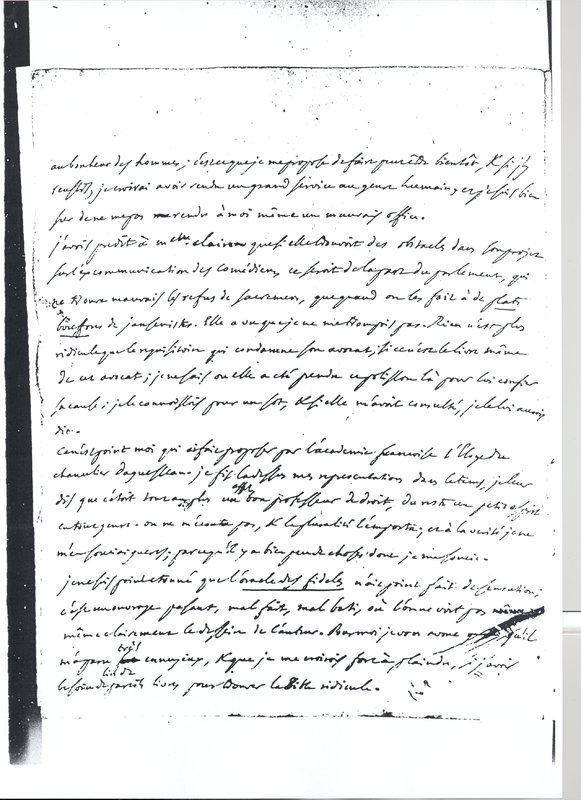 au bonheur des hommes; c'est ce que je me propose de faire peut être bientôt, & si j'y
reussis, je croirai avoir rendu un grand service au genre humain, et je suis bien
sur de ne m'etre pas rendu à moi même un mauvais office.
j'avois predit à melle clairon que si elle trouvoit des obstacles dans son projet
sur l'excommunication des comédiens, ce seroit de la part du parlement, qui
ne trouve mauvais les refus de sacremens, que quand on les fait à de plats
bouffons de jansenistes. Elle a vu que je ne me trompois pas. Rien n'est plus
ridicule que le requisitoire qui condamne son avocat, si ce n'est le livre même
de cet avocat; je ne sais ou elle a été prendre ce polisson là pour lui confier
sa cause: je le connoissois pour un sot, & si elle m'avoit consulté, je le lui aurois
dit.
Ce n'est point moi qui ai fait proposer par l'académie françoise l'Eloge du
chancelier Daguesseau. je fis la dessus mes representations dans le tems, je leur
dis que c'étoit tout au plus un assez bon professeur de droit, du reste un petit esprit
en tout genre. on ne m'écouta pas, & la pluralité l'emporta; et à la verité je ne
m'en souciai gueres, parce qu'il y a bien peu de choses dont je me soucie.
je ne suis point étonné que l'oracle des fideles n'ait point fait de sensation;
c'est un ouvrage pesant, mal fait, mal bati, où l'on ne voit pas
même clairement le dessein de l'auteur. Pour moi je vous avoue qu'il
m'a paru très ennuyeux, & que je me croirois fort à plaindre, si j'avois
besoin de lire de pareils livres pour trouver la Bible ridicule.